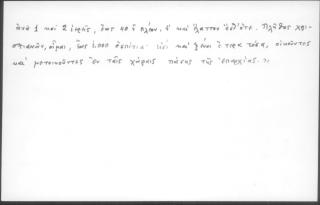 ἀνὰ 1 καὶ 2 ἱερεῖς, ἕως 40 ἢ πλέον, ἢ καὶ ἔλαττον ἐνίοτε. Πλῆθος χρι-
στιανῶν, οἶμαι, ἕως 1.000 ὁσπίτια· εἰσὶ καὶ ξένοι ἕτερα τόσα, οἰκοῦντες
καὶ μετοικοῦντες ἐν ταῖς χώραις πάσης τῆς ἐπαρχίας.